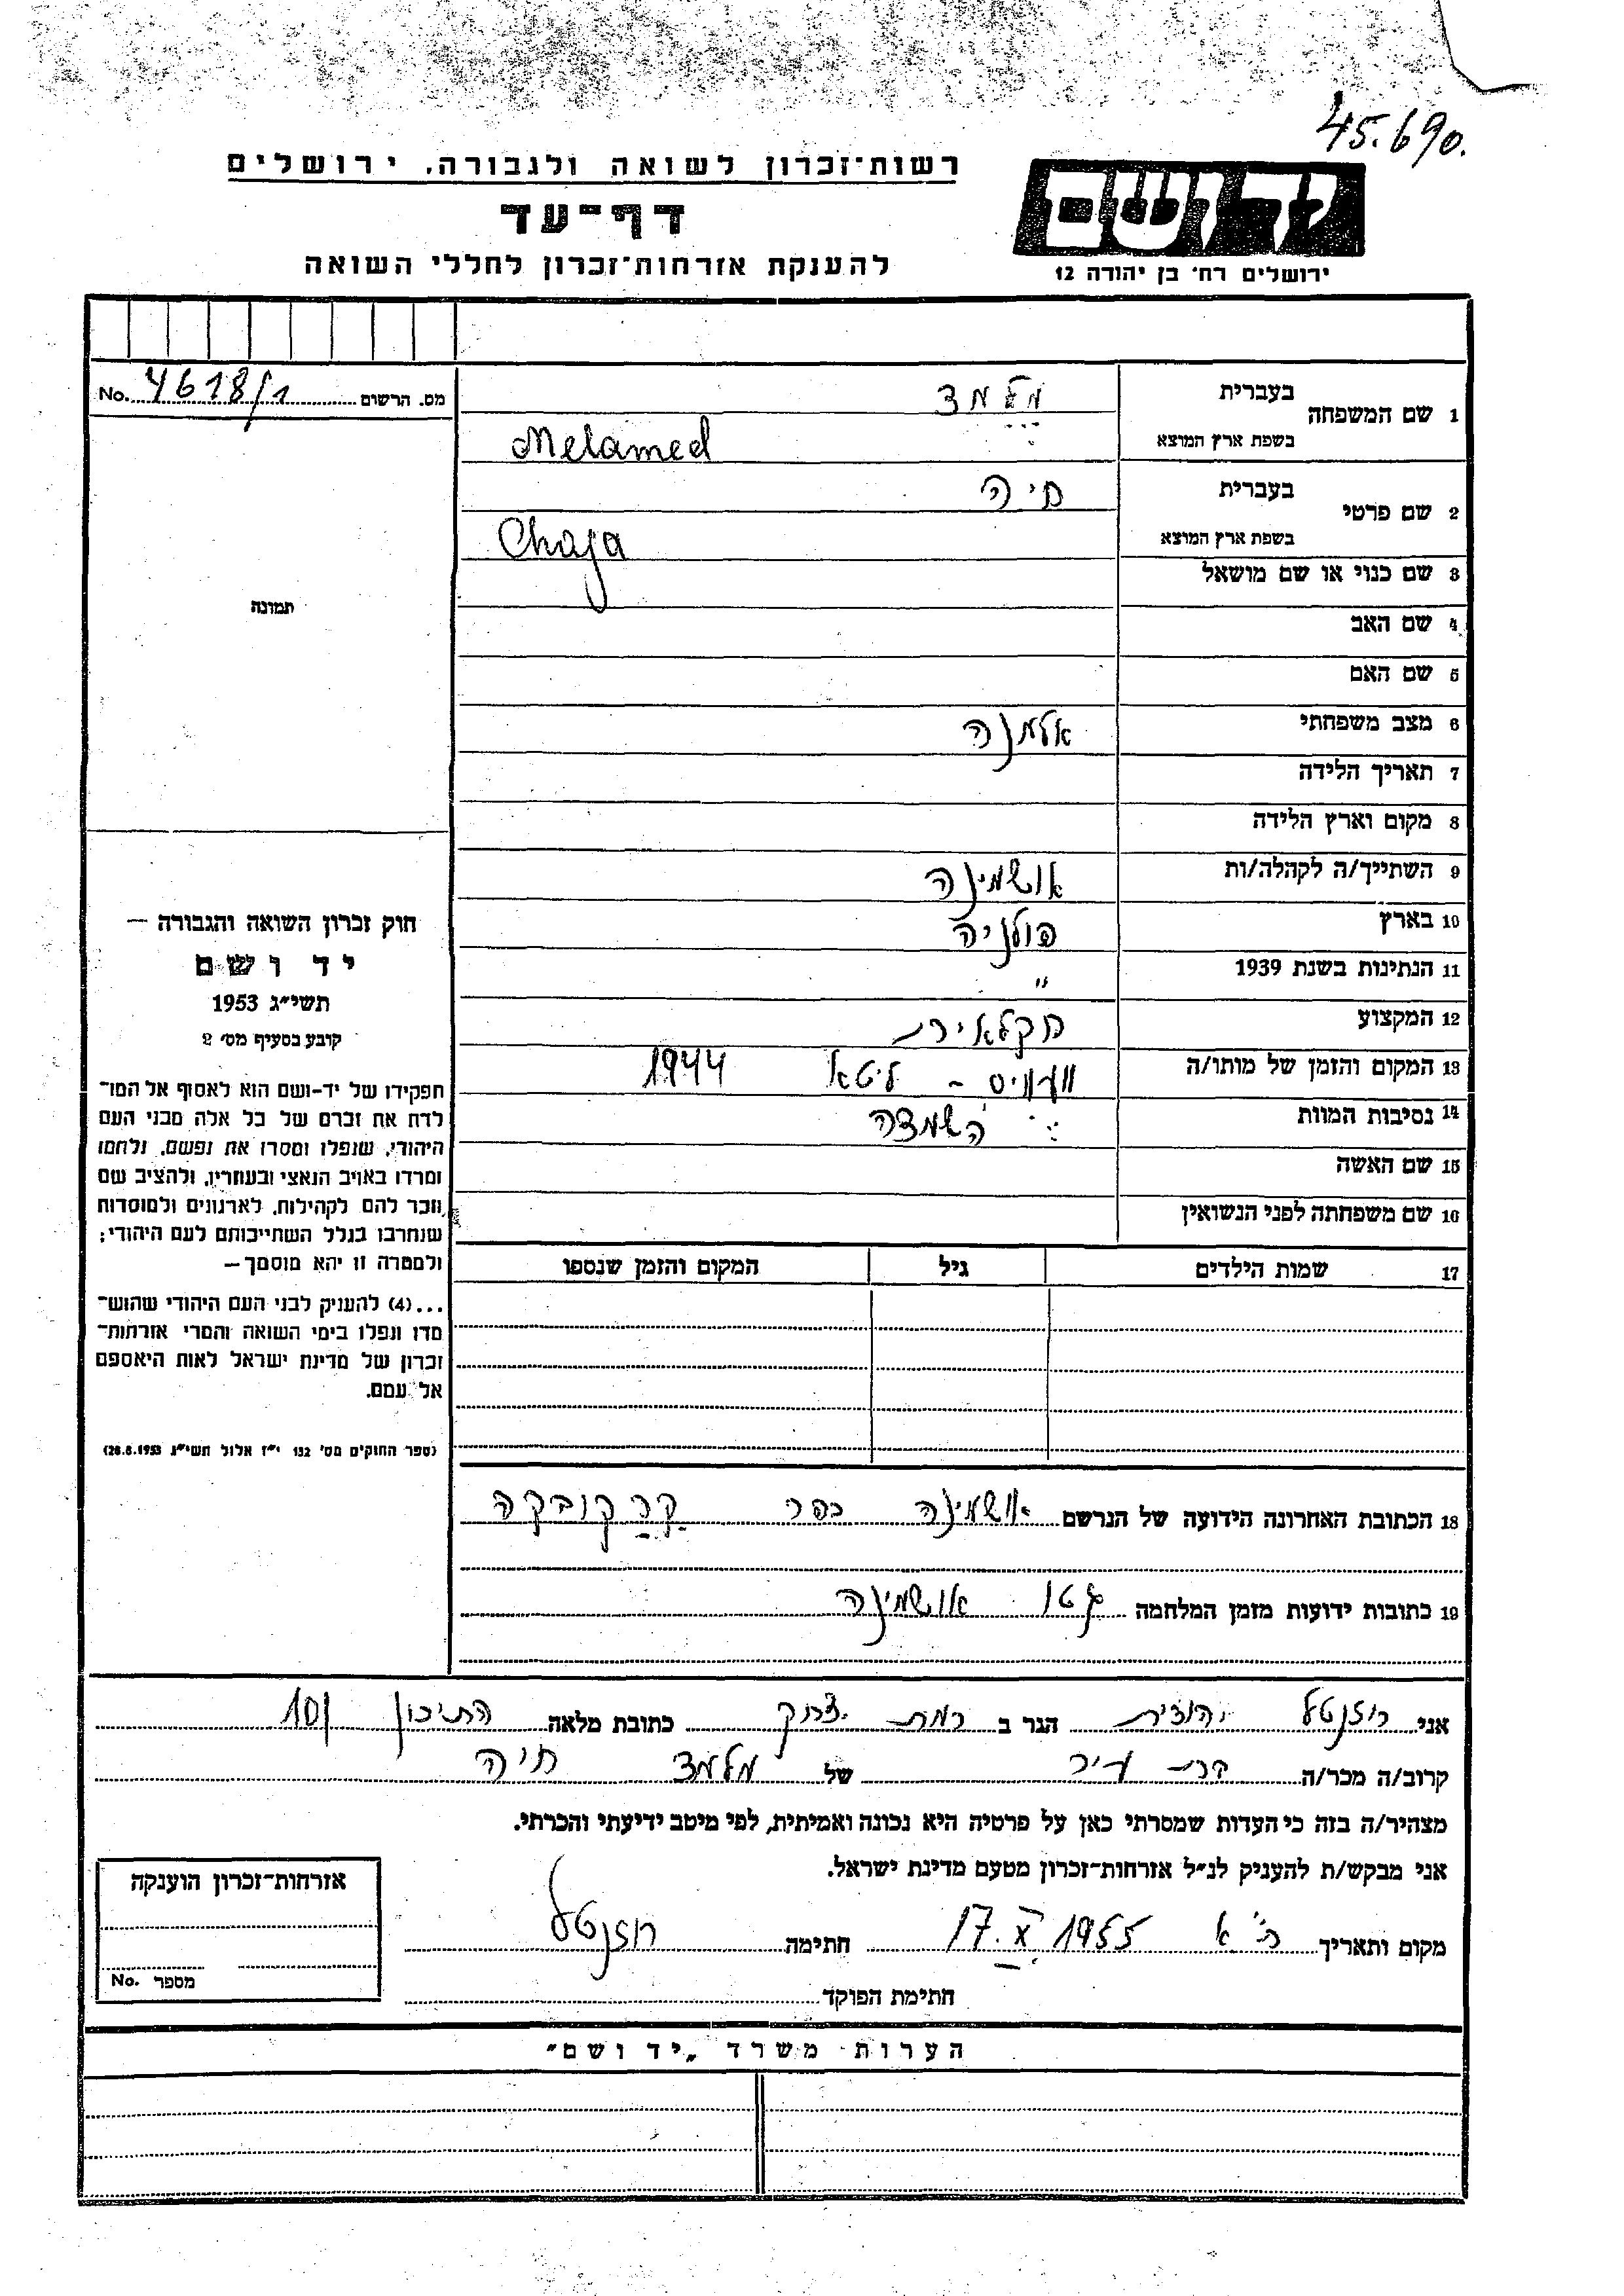 45.690.
רשות־זכרון לשואה ולגבורה, ירושלים
דף־עד
להענקת אזרחות־זכרון לחללי השואה
יד ושם
ירושלים רח' בן יהודה 12
מס. הרשום 4618/1 No.
1 שם המשפחה בעברית מלמד
בשפת ארץ המוצא Melamed
2 שם פרטי בעברית חיה
בשפת ארץ המוצא Chaja
3 שם כנוי או שם מושאל
4 שם האב
5 שם האם
6 מצב משפחתי אלמנה
7 תאריך הלידה
8 מקום וארץ הלידה
9 השתייך/ה לקהלה/ות אושמינה
10 בארץ פולניה
11 הנתינות בשנת 1939 "
12 המקצוע חקלאית
13 המקום והזמן של מותו/ה ליטא 1944
14 נסיבות המוות השמדה
15 שם האשה
16 שם משפחתה לפני הנשואין
17 שמות הילדים גיל המקום והזמן שנספו
תמונה
חוק זכרון השואה והגבורה —
יד ושם
תשי"ג 1953
קובע בסעיף מס' 2
תפקידו של יד-ושם הוא לאסוף אל המו־
לדת את זכרם של כל אלה מבני העם
היהודי, שנפלו ומסרו את נפשם, נלחמו
ומרדו באויב הנאצי ובעוזריו, ולהציב שם
וזכר להם לקהילות, לארגונים ולמוסדות
שנחרבו בגלל השתייכותם לעם היהודי;
ולמטרה זו יהא מוסמך —
...(4) להעניק לבני העם היהודי שהוש־
מדו ונפלו בימי השואה והמרי אזרחות־
זכרון של מדינת ישראל לאות היאספם
אל עמם.
(ספר החוקים מס' 132 י"ז אלול תשי"ג 28.8.1953)
18 הכתובת האחרונה הידועה של הנרשם אושמינה כפר קרקובקה
19 כתובות ידועות מזמן המלחמה גטו אושמינה
אני רוזנטל יהודית הגר ב רמת כתובת מלאה התיכון 101
קרוב/ה מכר/ה בת עיר של מלמד חיה
מצהיר/ה בזה כי העדות שמסרתי כאן על פרטיה היא נכונה ואמיתית, לפי מיטב ידיעתי והכרתי.
אני מבקש/ת להעניק לנ"ל אזרחות־זכרון מטעם מדינת ישראל.
מקום ותאריך ת"א 17.X.1955 חתימה רוזנטל
חתימת הפוקד
אזרחות־זכרון הוענקה
מספר No.
הערות משרד „יד ושם"